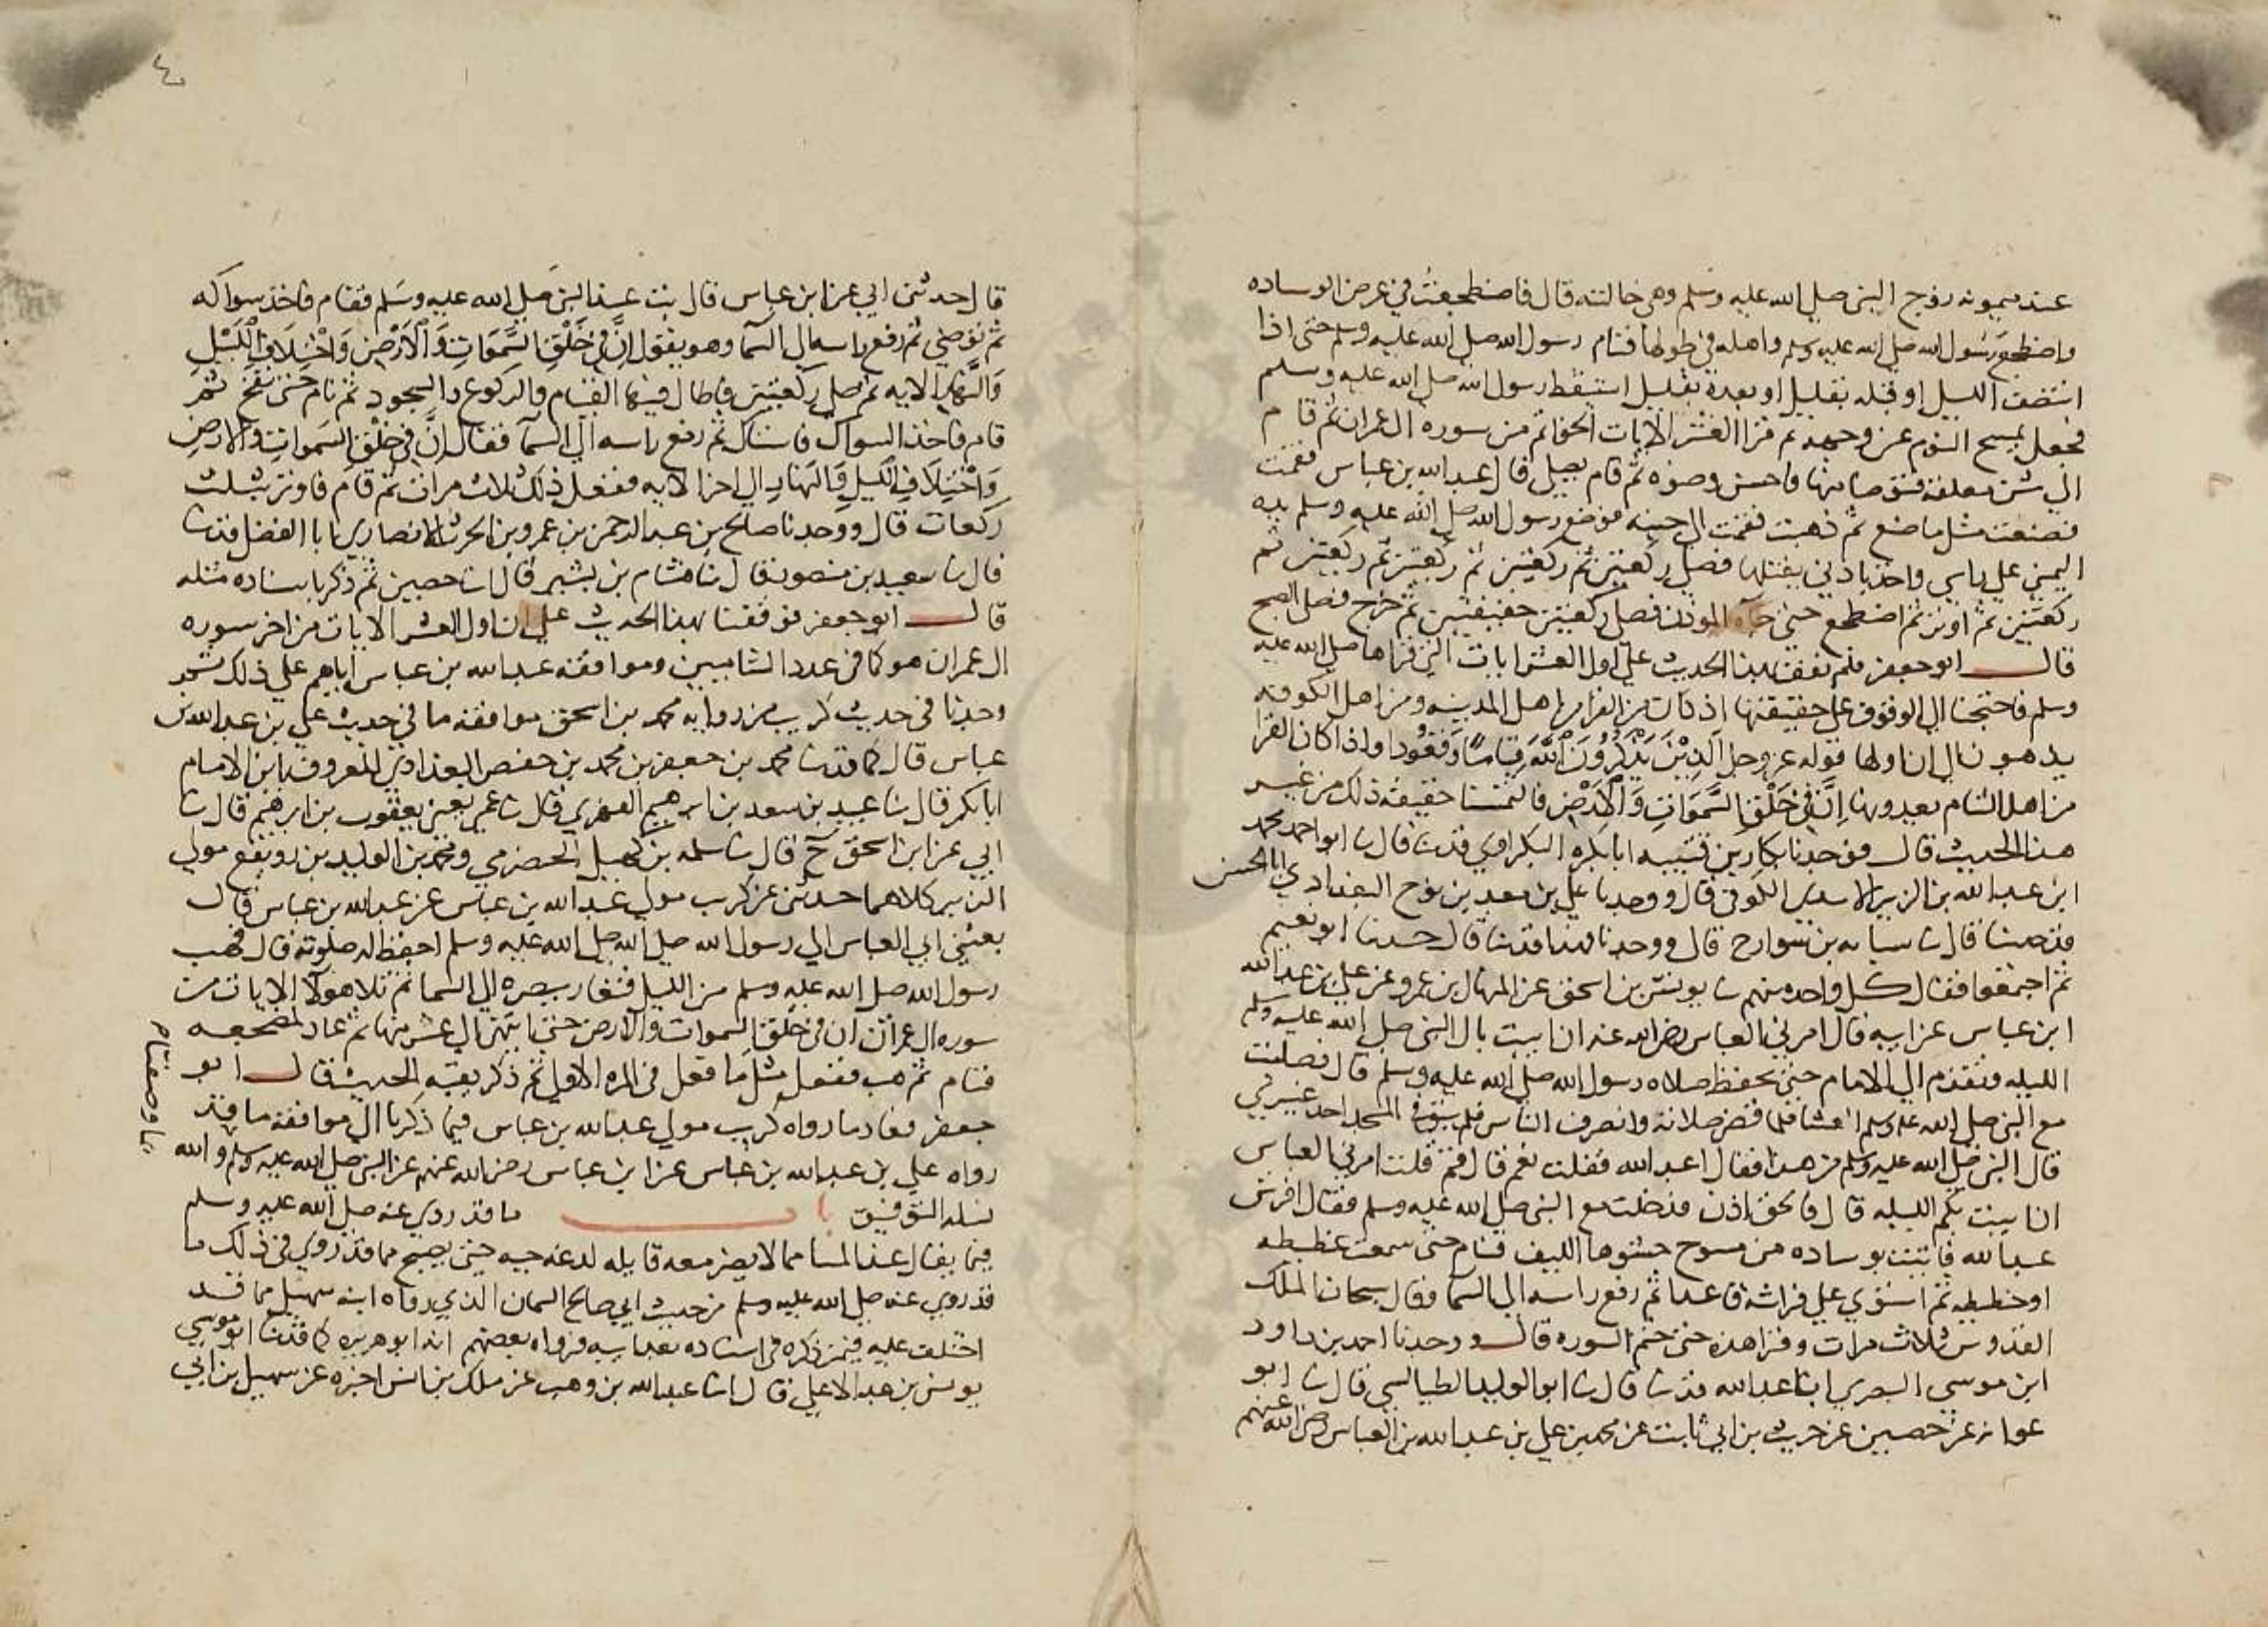 عند ميمونه زوج النبي صلي الله عليه وسلم وهي خالته قال فاضطجعت في عرض الوساده
واضطجع رسول الله صلي الله عليه وسلم واهله في طولها فنام رسول الله صلي الله عليه وسلم حتي اذا
انتصف الليل او قبله بقليل او بعده بقليل استيقظ رسول الله صلي الله عليه وسلم
فجعل يمسح النوم عن وجهه ثم قرا العشر الايات الخواتم من سوره ال عمران ثم قام
الي شن معلقه فتوضا منها فاحسن وضوه ثم قام يصلي قال عبد الله بن عباس فقمت
فصنعت مثل ما صنع ثم ذهبت فقمت الي جنبه فوضع رسول الله صلي الله عليه وسلم يده
اليمني علي راسي واخذ باذني يفتلها فصلي ركعتين ثم ركعتين ثم ركعتين ثم ركعتين ثم
ركعتين ثم اوتر ثم اضطجع حتي جآه الموذن فصلي ركعتين خفيفتين ثم خرج فصلي الصبح
قال ابو جعفر فلم نقف بهذا الحديث علي اول العشر ايات التي قراها صلي الله عليه
وسلم فاحتجنا الي الوقوف علي حقيقتها اذ كان من القرا من اهل المدينه ومن اهل الكوفه
يذهبون الي ان اولها قوله عز وجل الَّذِيْنَ يَذْكُرُونَ اللَّهَ قِيَامًا وَقُعُودا واذا كان القرا
من اهل الشام يعدونها إِنَّ فِي خَلْقِ السَّمَوَاتِ وَالْاَرْضِ فالتمسنا حقيقه ذلك من غير
هذا الحديث قال فوجدنا بكار بن قتيبه ابا بكره البكراوي قد ثنا قال ثنا ابو احمد محمد
ابن عبد الله بن الزبير الاسدي الكوفي قال ووجدنا علي بن معبد بن نوح البغدادي ابا الحسن
قد حدثنا قال ثنا شبابه بن سوار ح قال ووجدنا فهدا قد ثنا قال حدثنا ابو نعيم
ثم اجتمعوا فقال كل واحد منهم ثنا يونس بن اسحق عن المنهال بن عمرو عن علي بن عبد الله
ابن عباس عن ابيه قال امرني العباس رضي الله عنه ان ابيت بال النبي صلي الله عليه وسلم
الليله وتقدم الي الا انام حتي احفظ صلاه رسول الله صلي الله عليه وسلم قال فصليت
مع النبي صلي الله عليه وسلم العشا فلما قضي صلاته وانصرف الناس فلم يبق في المسجد احد غيري
قال النبي صلي الله عليه وسلم من هذا فقال اعبد الله فقلت نعم قال فمه قلت امرني العباس
ان ابيت بكم الليله قال فالحق اذن فدخلت مع النبي صلي الله عليه وسلم فقال افرش
عبد الله فاتيت بوساده من مسوح حشوها الليف فنام حتي سمعت غطيطه
او خطيطه ثم استوي علي فراشه قاعدا ثم رفع راسه الي السما فقال سبحان الملك
القدوس ثلاث مرات وقرا هذه حتي ختم السوره قال ووجدنا احمد بن داود
ابن موسي البصري ابا عبد الله قد ثنا قال ثنا ابو الوليد الطيالسي قال ثنا ابو
عوانه عن حصين عن حبيب بن ابي ثابت عن محمد بن علي بن عبد الله بن العباس رضي الله عنهم
٤
قال حدثني ابي عن ابن عباس قال بت عند النبي صلي الله عليه وسلم فقام فاخذ سواكه
ثم توضي ثم رفع راسه الي السما وهو يقول إِنَّ فِي خَلْقِ السَّمَوَاتِ وَالْاَرْضِ وَاخْتِلَافِ اللَّيْلِ
وَالنَّهَارِ الايه ثم صلي ركعتين فاطال فيها القيام والركوع والسجود ثم نام حتي نفخ ثم
قام فاخذ السواك فاستاك ثم رفع راسه الي السمآ فقال إِنَّ فِي خَلْقِ السَّموَاتِ وَالارْضِ
وَاخْتِلَافِ اللَّيلِ وَالنَهَارِ الي اخر الايه ففعل ذلك ثلاث مرات ثم قام فاوتر بثلث
ركعات قال ووجدنا صالح بن عبد الرحمن بن عمرو بن الحرث الانصاري ابا الفضل قد ثنا
قال ثنا سعيد بن منصور قال ثنا هشام بن بشير قال ثنا حصين ثم ذكر باسناده مثله
قال ابو جعفر فوقفنا بهذا الحديث علي ان اول العشر الايات من اخر سوره
ال عمران هو كما في عدد الشاميين وموافقه عبد الله بن عباس اياهم علي ذلك ثم
وجدنا في حديث كريب من روايه محمد بن اسحق موافقه ما في حديث علي بن عبد الله بن
عباس قال كما قد ثنا محمد بن جعفر بن محمد بن حفص البغدادي المعروف بابن الامام
ابا بكر قال ثنا عبيد بن سعد بن ابرهيم الزهري قال ثنا عمي يعني يعقوب بن ابرهيم قال ثنا
ابي عن ابن اسحق ح قال ثنا سلمه بن كهيل الحضرمي ومحمد بن الوليد بن نويفع مولي
الزبير كلاهما حدثني عن كريب مولي عبد الله بن عباس عن عبد الله بن عباس قال
بعثني ابي العباس الي رسول الله صلي الله صلي الله عليه وسلم احفظ له صلوته قال فهب
رسول الله صلي الله عليه وسلم من الليل فتعار ببصره الي السما ثم تلا هولآ الايات من
سوره ال عمران ان في خلق السموات والارض حتي انتهي الي عشر منها ثم عاد لمضجعه
فنام ثم هب ففعل مثل ما فعل في المره الاولي ثم ذكر بقيه الحديث قال ابو
جعفر فعاد ما رواه كريب مولي عبد الله بن عباس فيما ذكرنا الي موافقه ما قد
رواه علي بن عبد الله بن عباس عن ابن عباس رضي الله عنهم عن النبي صلي الله عليه وسلم والله
نسله التوفيق باب ما قد روي عنه صلي الله عليه وسلم
فيما يقال عند المسا مما لا يضر معه قايله لدغه حيه حتي يصبح مما قد روي في ذلك ما
قد روي عنه صلي الله عليه وسلم من حديث ابي صالح السمان الذي رواه ابنه سهيل مما قد
اختلف عليه فيمن ذكره في اسناده بعد ابيه فرواه بعضهم انه ابو هريره كما قد ثنا ابو موسي
يونس بن عبد الاعلي قال انبا عبد الله بن وهب عن ملك بن انس اخبره عن سهيل بن ابي